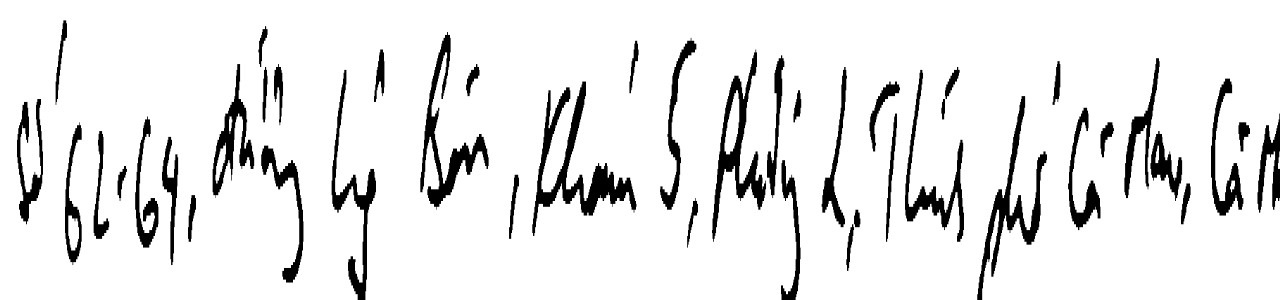 Số 62-64, đường Lý Bôn, Khóm 5, phường 2, Thành phố Cà Mau, Cà M